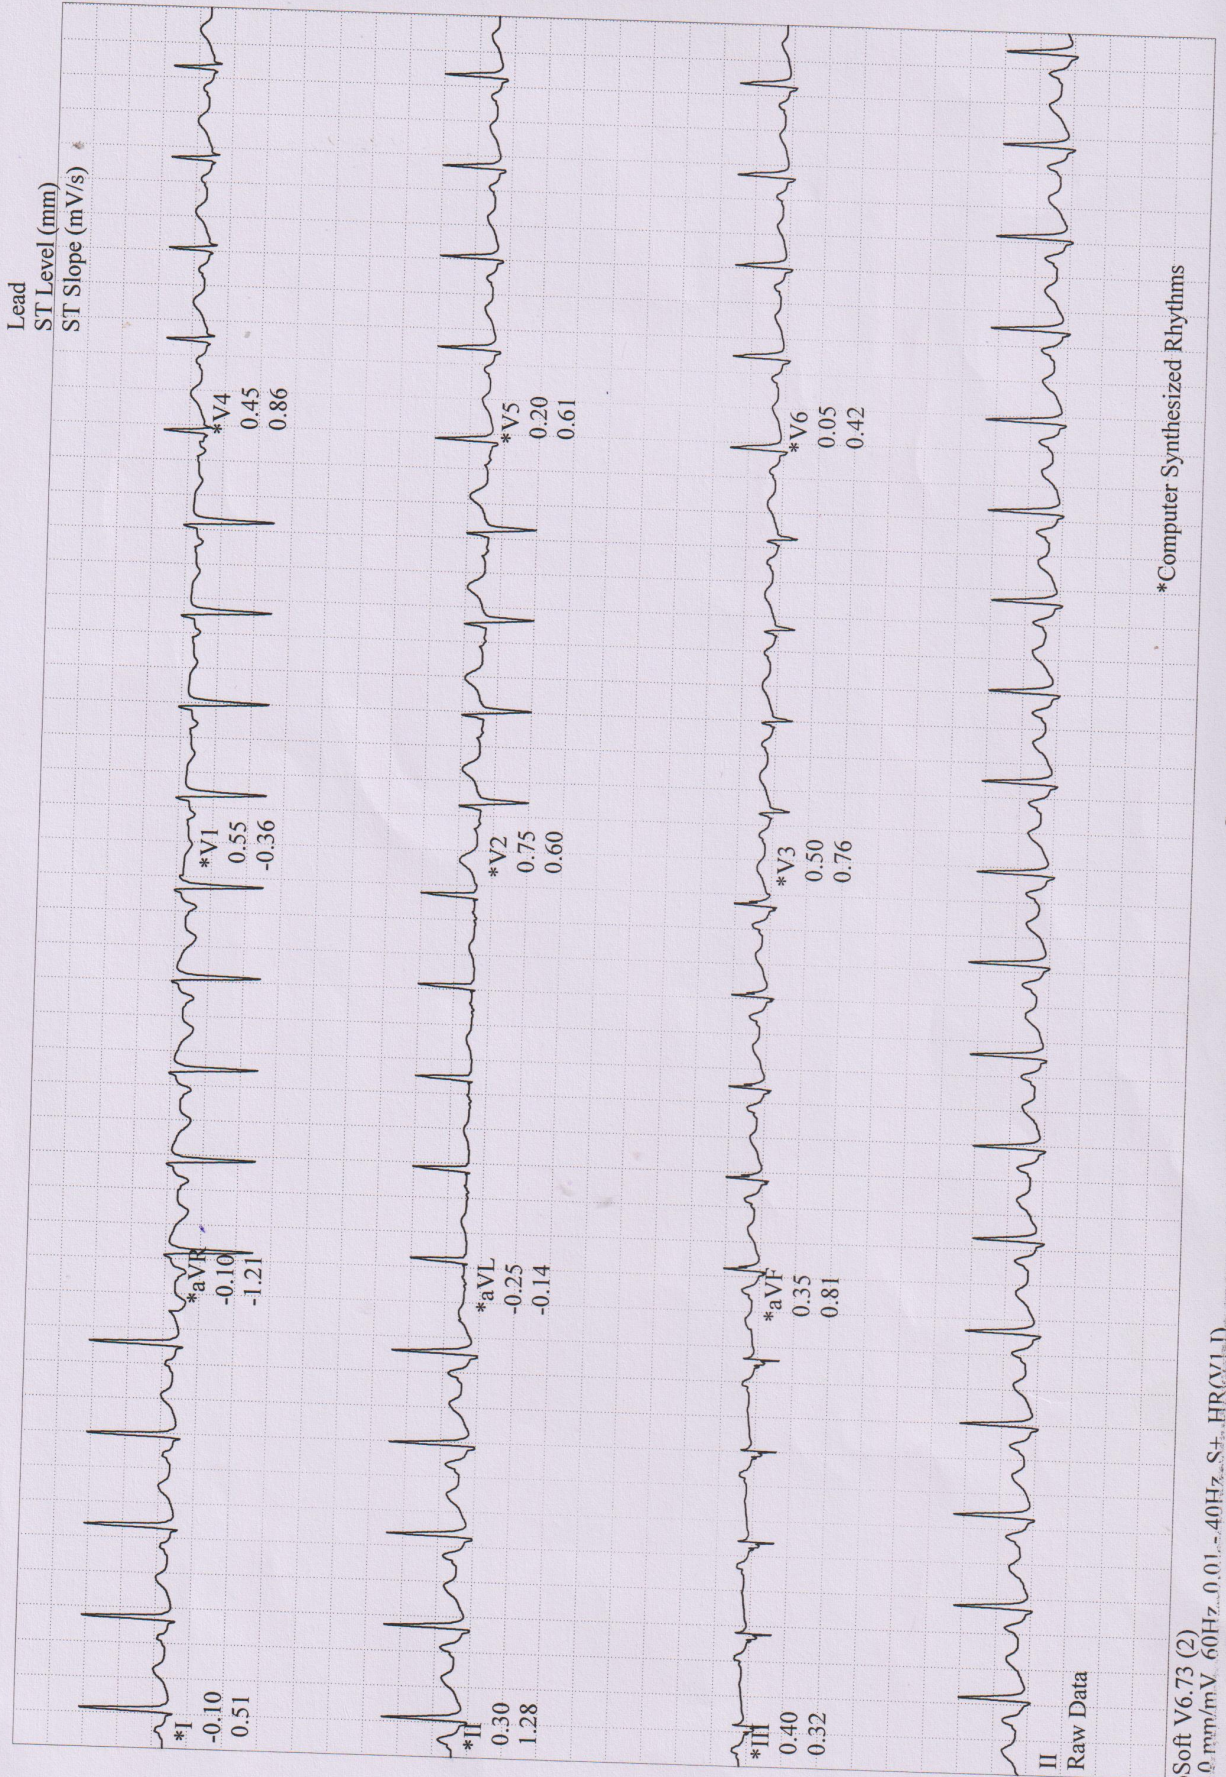 Lead
ST Level (mm)
ST Slope (mV/s)
*I
-0.10
0.51
*aVR
-0.10
-1.21
*V1
0.55
-0.36
*V4
0.45
0.86
*II
0.30
1.28
*aVL
-0.25
-0.14
*V2
0.75
0.60
*V5
0.20
0.61
*III
0.40
0.32
*aVF
0.35
0.81
*V3
0.50
0.76
*V6
0.05
0.42
II
Raw Data
*Computer Synthesized Rhythms
Soft V6.73 (2)
0 mm/mV 60Hz 0.01 - 40Hz S+ HR(V1,I)